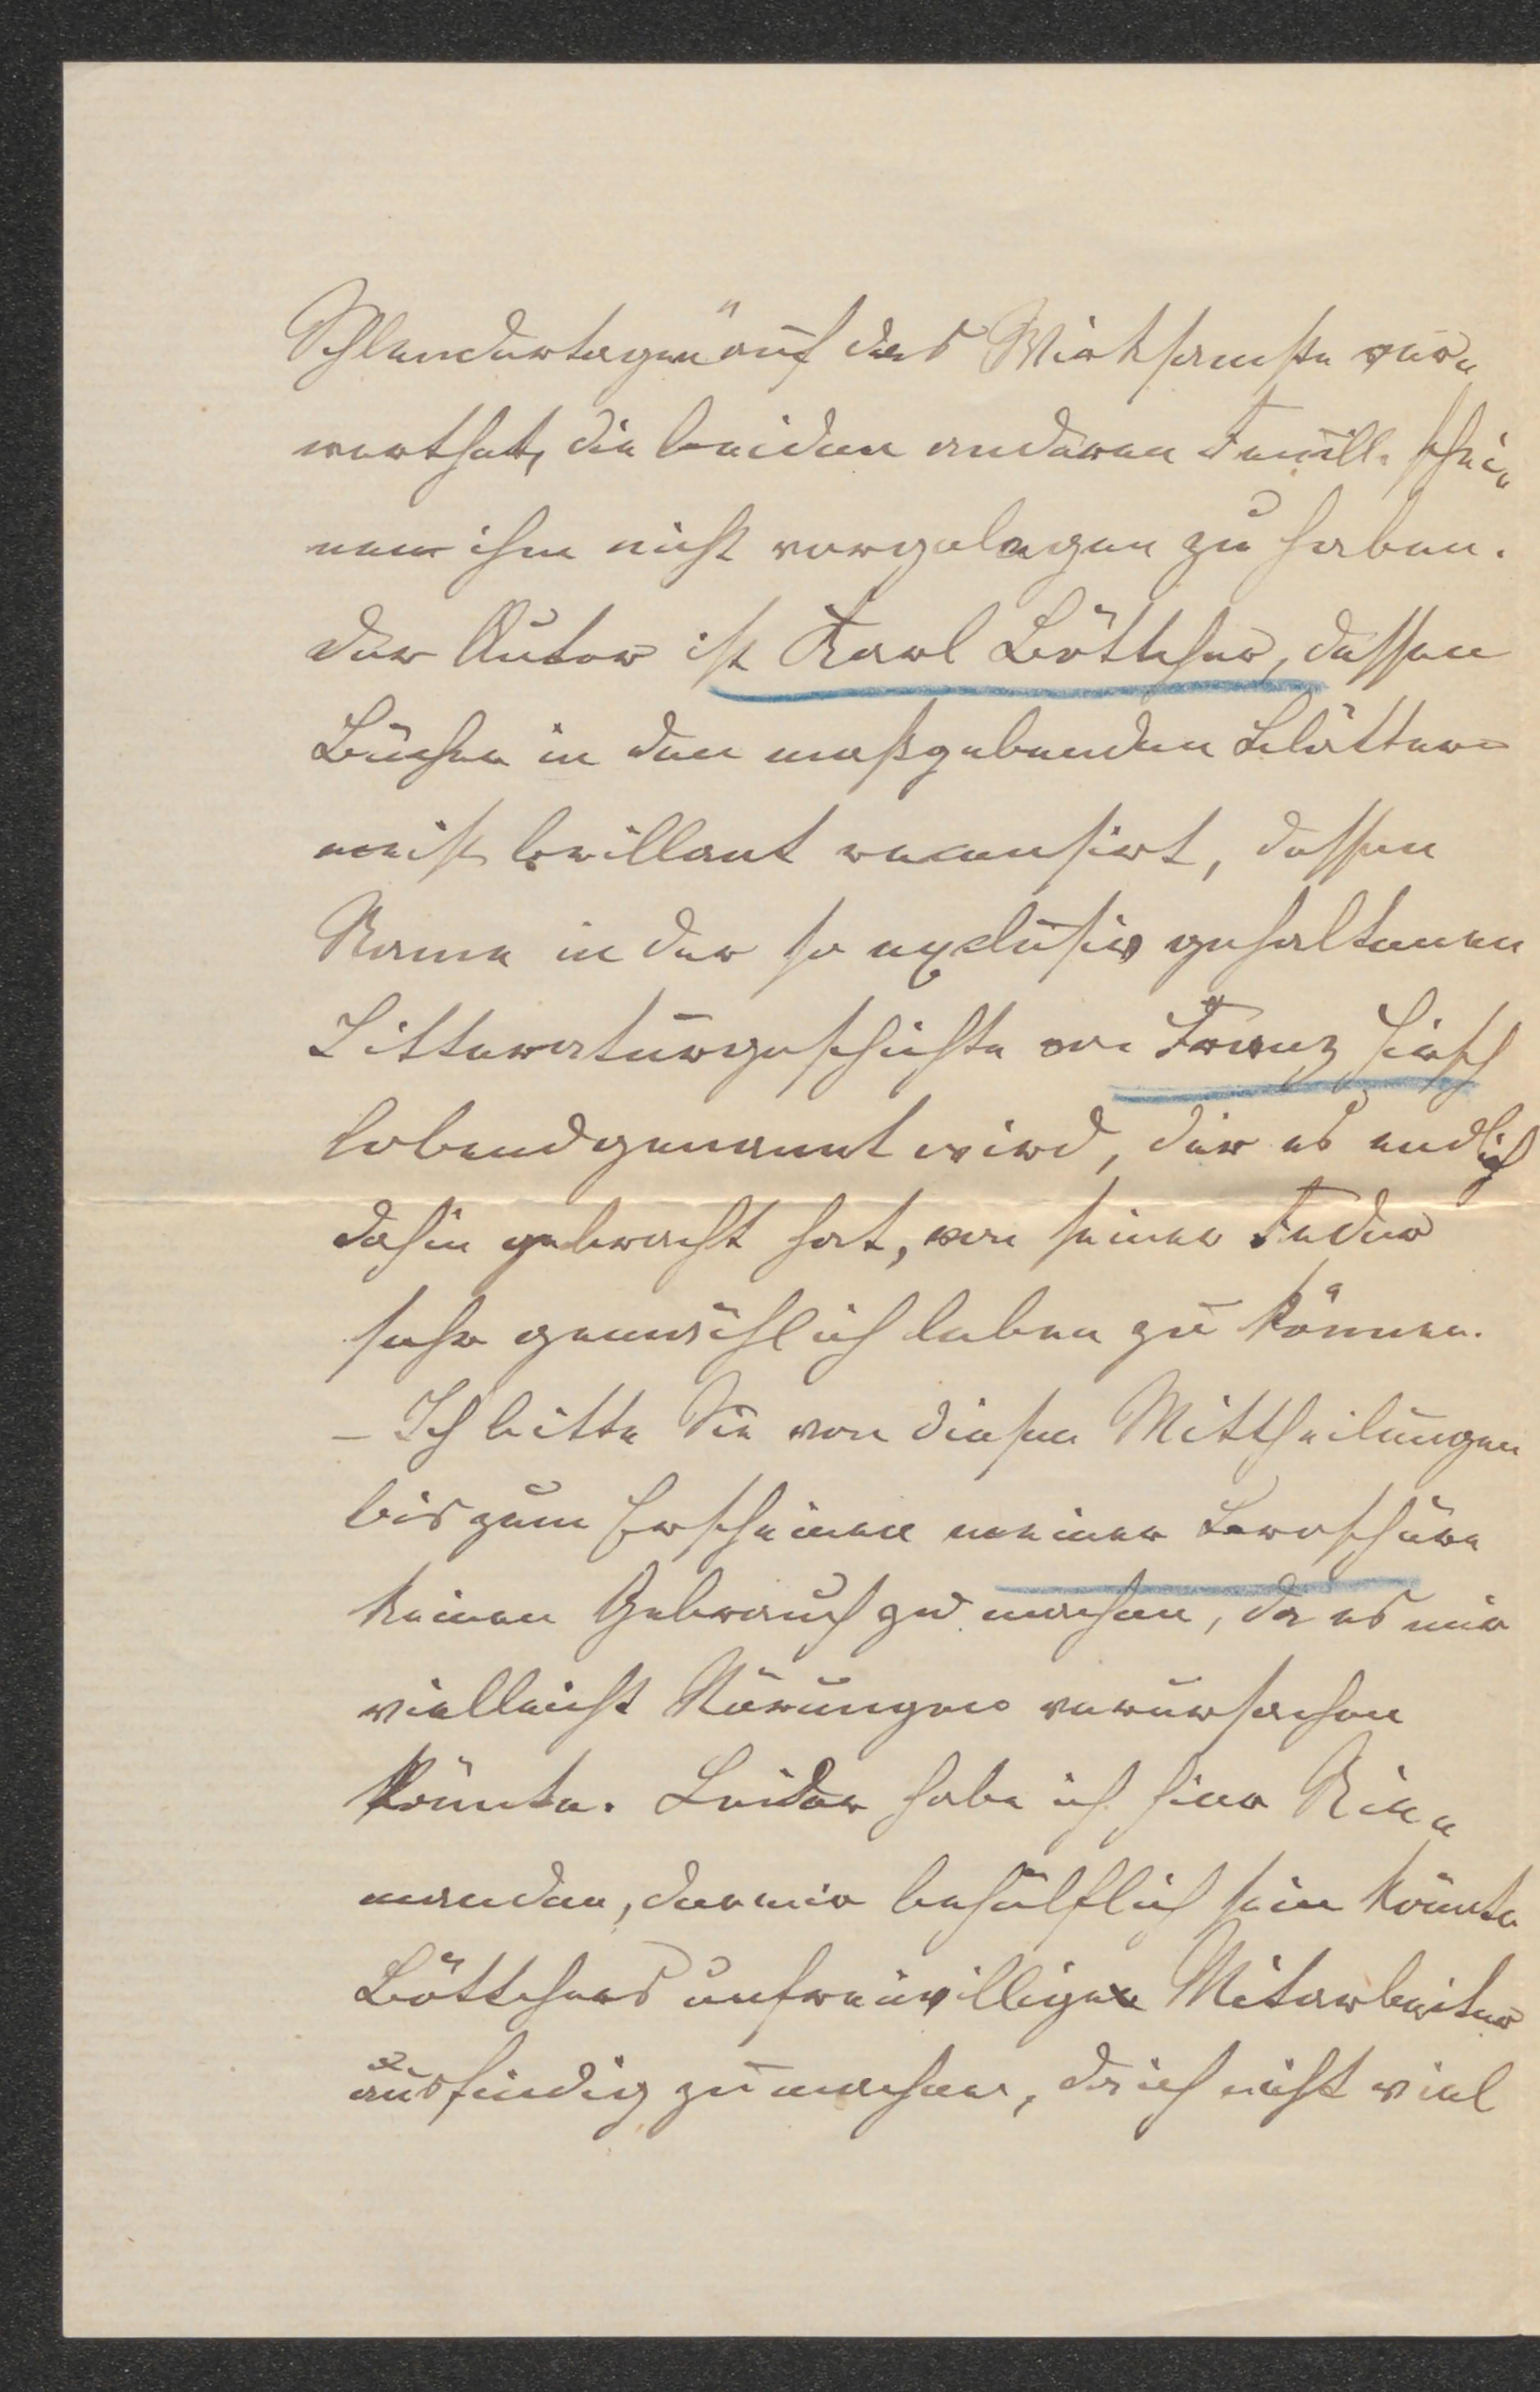 Schlendertagen" auf das Wirksamste ver-
werthet, die beiden anderen Feuill. schei-
nen ihm nicht vorgelegen zu haben.
Der Autor ist Karl Böttcher, dessen
Bücher in den maßgebenden Blättern
meist brillant recensirt, dessen
Name in der so exclusiv gehaltenen
Litteraturgeschichte von Franz Hirsch
lobend genannt wird, der es endlich
dahin gebracht hat, von seiner Feder
sehr gemächlich leben zu können.
– Ich bitte Sie von diesen Mittheilungen
bis zum Erscheinen meiner Broschüre
keinen Gebrauch zu machen, da es mir
vielleicht Störungen verursachen
könnte. Leider habe ich hier Nie-
manden, der mir behülflich sein könnte
Böttchers unfreiwillige Mitarbeiter
ausfindig zu machen, da ich nicht viel